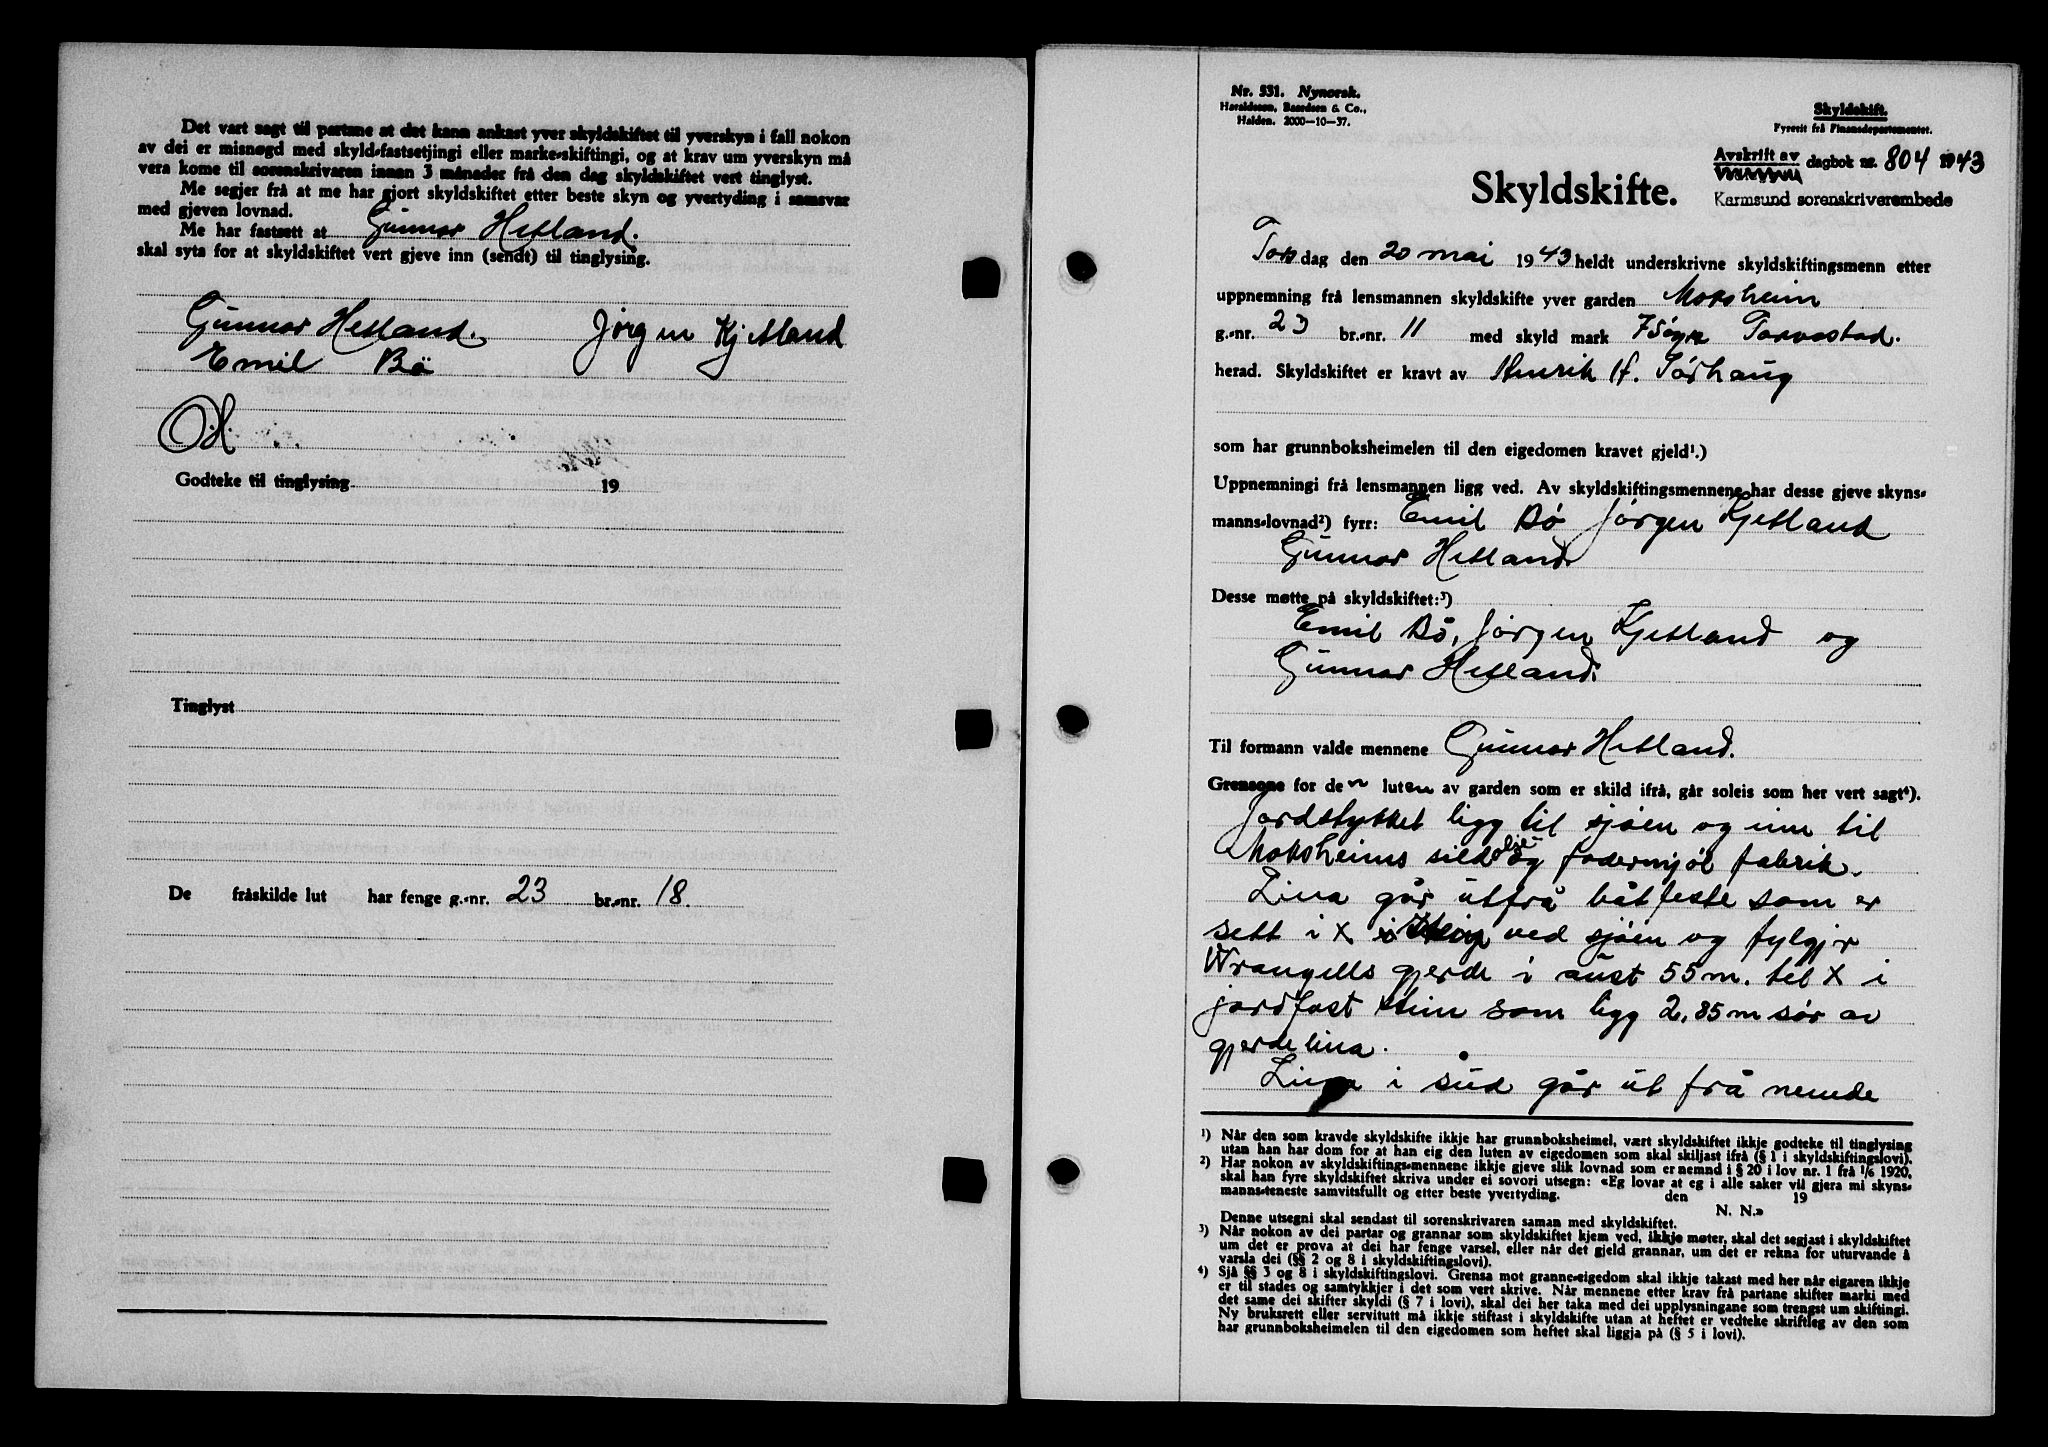 Det vart sagt til partane at det kann ankast yver skyldskiftet til yverskyn i fall nokon
av dei er misnøgd med skyld-fastsetjingi eller marke-skiftingi, og at krav um yverskyn må
vera kome til sorenskrivaren innan 3 månader frå den dag skyldskiftet vert tinglyst.
Me segjer frå at me har gjort skyldskiftet etter beste skyn og yvertyding i samsvar
med gjeven lovnad.
Me har fastsett at Gunnar Hetland.
skal syta for at skyldskiftet vert gjeve inn (sendt) til tinglysing.
Gunnar Hetland. Jørgen Kjetland
Emil Bö
Godteke til tinglysing 19
Tinglyst
De fråskilde lut har fenge g.-nr. 23 br.-nr. 18.
Nr. 531. Nynorsk.
Haraldssen, Baardsen & Co.,
Halden. 2000—10—37.
Skyldskift.
Fyresit frå Finansdepartementet.
Avskrift av dagbok nr. 804 1943
Karmsund sorenskriverembede
Skyldskifte.
Torsdag den 20 mai 1943 heldt underskrivne skyldskiftingsmenn etter
uppnemning frå lensmannen skyldskifte yver garden Morsheim
g.-nr. 23 br.-nr. 11 med skyld mark 75øyre Torvastad.
herad. Skyldskiftet er kravt av Henrik H. Tørhaug
som har grunnboksheimelen til den eigedomen kravet gjeld¹.)
Uppnemningi frå lensmannen ligg ved. Av skyldskiftingsmennene har desse gjeve skyns-
manns-lovnad²) fyrr: Emil Bö Jørgen Kjetland
Gunnar Hetland
Desse møtte på skyldskiftet:³)
Emil Bö, Jørgen Kjetland og
Gunnar Hetland.
Til formann valde mennene Gunnar Hetland.
Grensone for den luten av garden som er skild ifrå, går soleis som her vert sagt⁴).
Jordstykket ligg til sjøen og inn til
Morsheims sildolje og fodermjøl fabrik.
Lina går utfrå båtfeste som er
sett i X i ved sjøen og fylgjer
Wrangells gjerde i aust 55 m. til X i
jordfast stein som ligg 2,85 m sør av
gjerdelina.
Lina i sud går ut frå nemde
¹) Når den som kravde skyldskifte ikkje har grunnboksheimel, vært skyldskiftet ikkje godteke til tinglysing
utan han har dom for at han eig den luten av eigedomen som skal skiljast ifrå (§ 1 i skyldskiftingslovi).
²) Har nokon av skyldskiftings-mennene ikkje gjeve slik lovnad som er nemnd i § 20 i lov nr. 1 frå 1/6 1920,
skal han fyre skyldskiftet skriva under ei sovori utsegn: «Eg lovar at eg i alle saker vil gjera mi skyns-
manns-teneste samvitsfullt og etter beste yvertyding. den 19
N. N.»
Denne utsegni skal sendast til sorenskrivaren saman med skyldskiftet.
³) Når nokon av dei partar og grannar som skyldskiftet kjem ved, ikkje møter, skal det segjast i skyldskiftet
um det er prova at dei har fenge varsel, eller når det gjeld grannar, um det er rekna for uturvande å
varsla dei (§§ 2 og 8 i skyldskiftingslovi).
⁴) Sjå §§ 3 og 8 i skyldskiftingslovi. Grensa mot granne-eigedom skal ikkje takast med her når eigaren ikkje
er til stades og samtykkjer i det som vert skrive. Når mennene etter krav frå partane skifter marki med
det same dei skifter skyldi (§ 7 i lovi), skal dei her taka med dei upplysningane som trengst um skiftingi.
Ny bruksrett eller servitutt må ikkje stiftast i skyldskifte utan at heftet er vedteke skriftleg av den som
har grunnboksheimelen til den eigedomen som heftet skal liggja på (§ 5 i lovi).